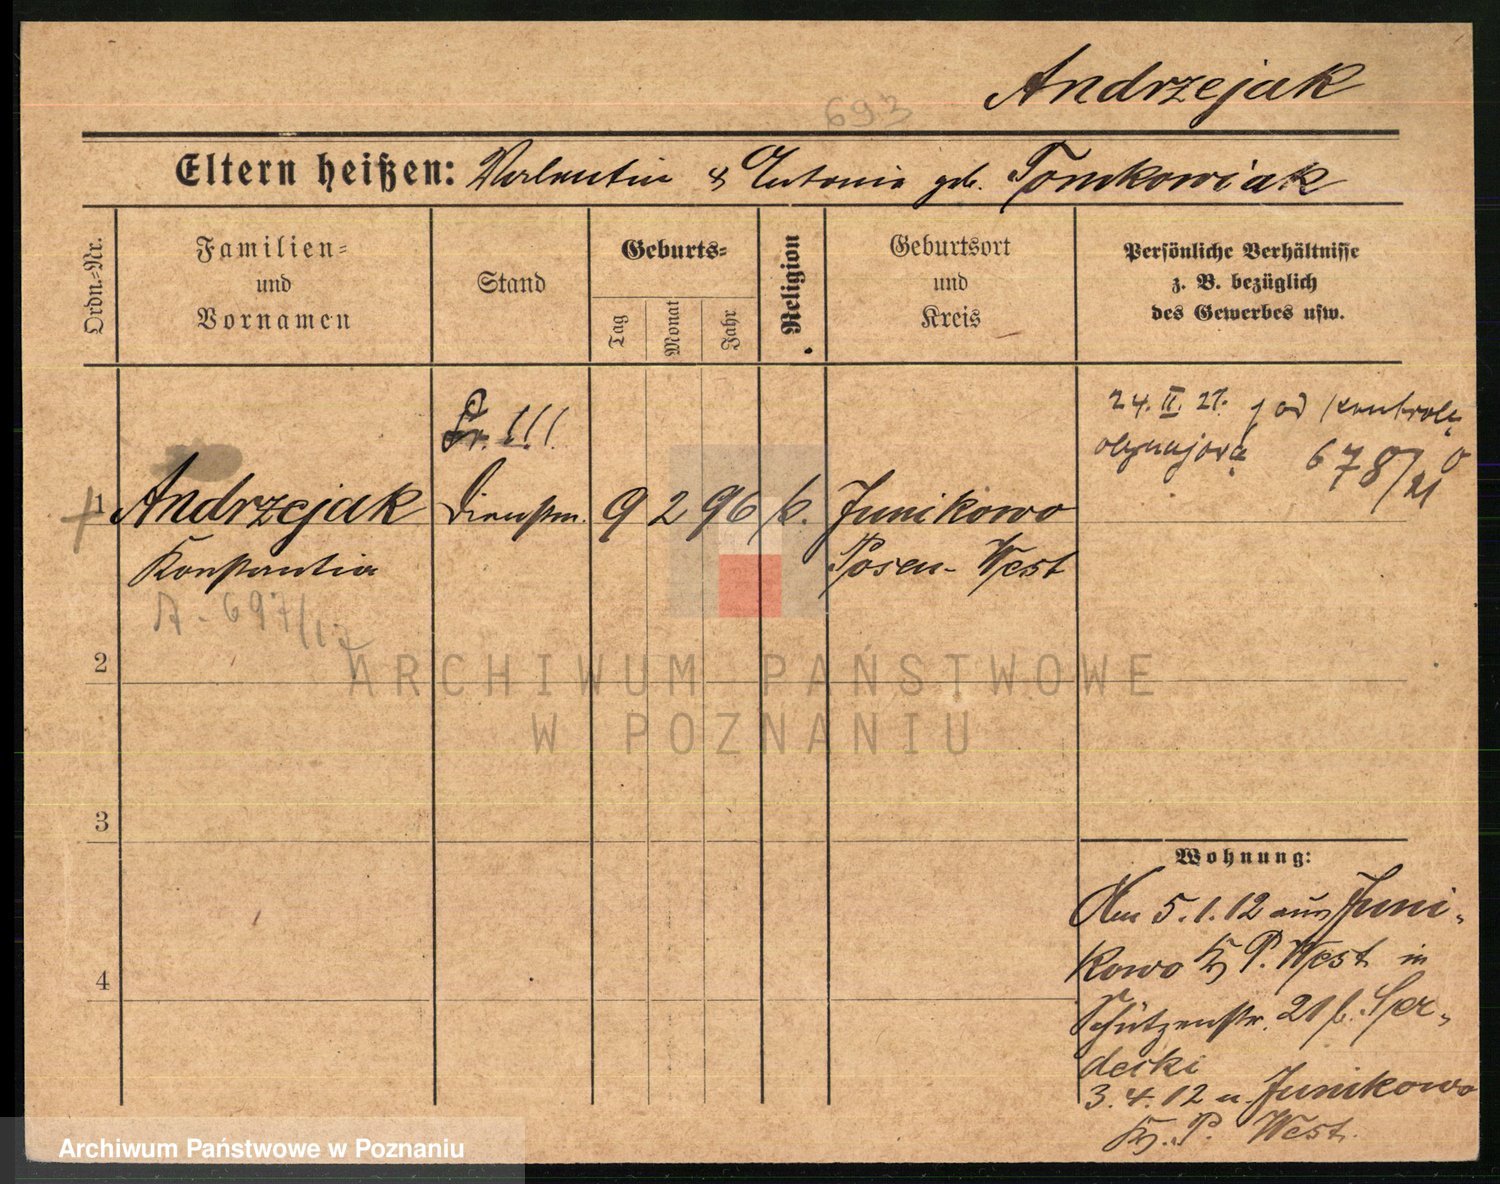 Andrzejak
693
Eltern heißen: Valentin & Antonie geb. Tomkowiak
Ordn.-Nr.
Familien-
und
Vornamen
Stand
Geburts-
Tag
Monat
Jahr
Religion
Geburtsort
und
Kreis
Persönliche Verhältnisse
z. B. bezüglich
des Gewerbes usw.
24. II. 21. pod kontrolę
obyczajową 678/21
1 Andrzejak Dienstm. 9 2 96 k. Junikowo
Konstantia Posen-West
A. 697/12
2
3
4
Wohnung:
Am 5.1.12 aus Juni-
kowo Kr P. West in
Schützenstr. 21 b. Sier-
decki
3.4.12 n. Junikowo
Kr. P. West.
ARCHIWUM PAŃSTWOWE
W POZNANIU
Archiwum Państwowe w Poznaniu